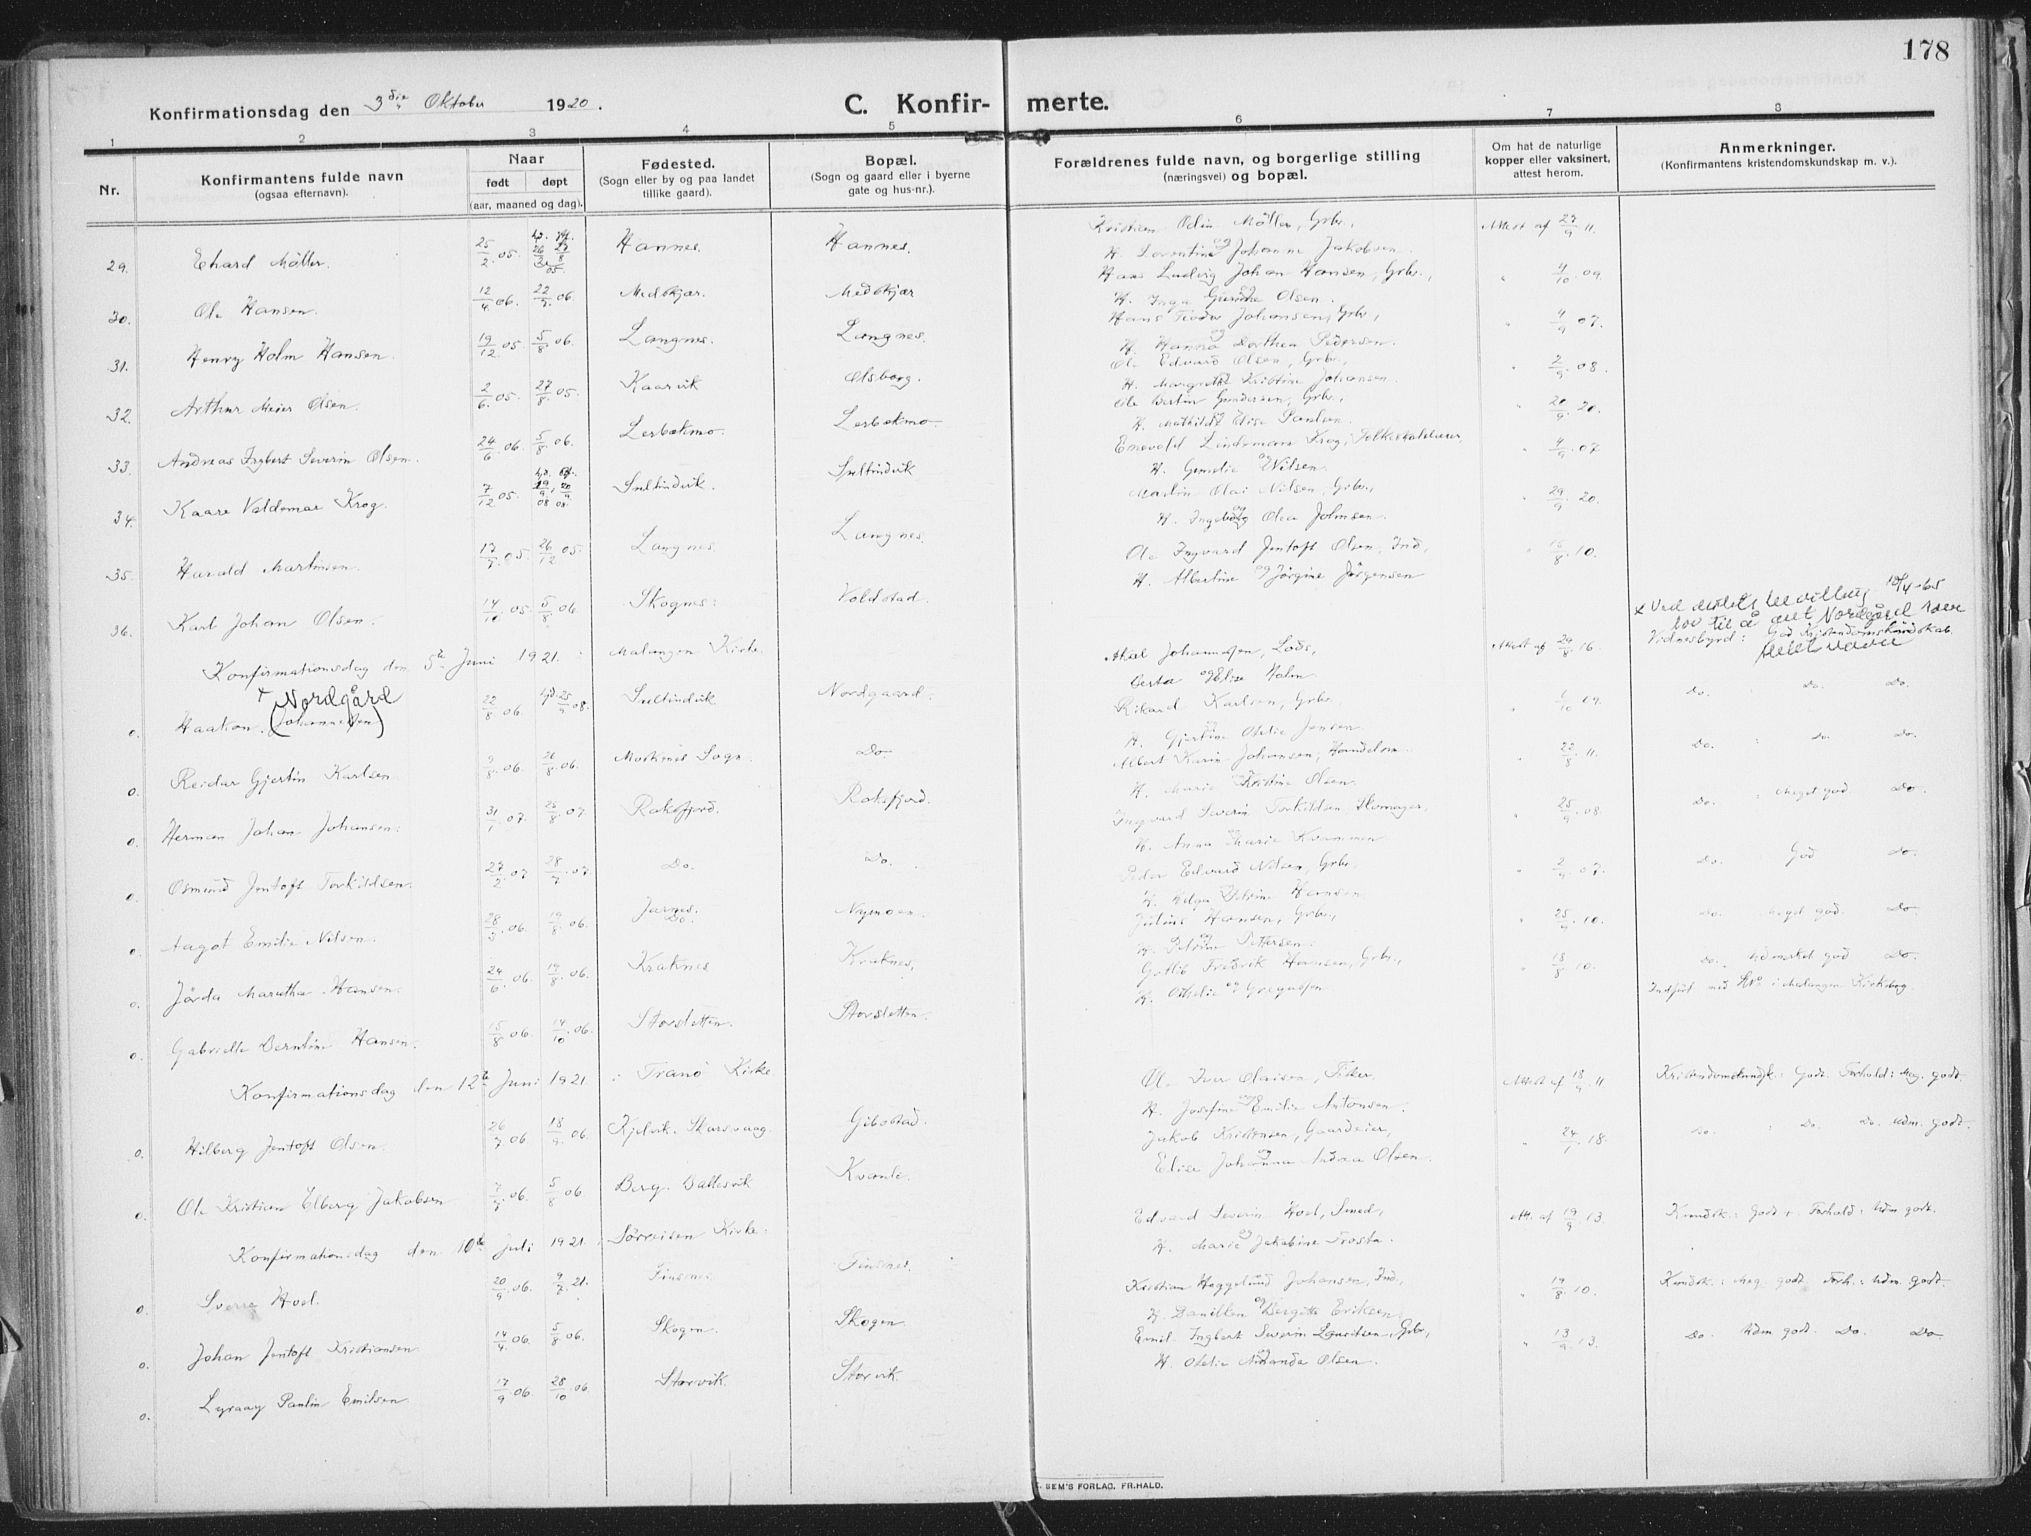 178
Konfirmationsdag den 3die Oktober 1920.
C. Konfirmerte.
1 2 3 4 5 6 7 8
Nr.
Konfirmantens fulde navn
(ogsaa efternavn).
Naar
født døpt
(aar, maaned og dag).
Fødested.
(Sogn eller by og paa landet
tillike gaard).
Bopæl.
(Sogn og gaard eller i byerne
gate og hus-nr.).
Forældrenes fulde navn, og borgerlige stilling
(næringsvei) og bopæl.
Om hat de naturlige
kopper eller vaksinert,
attest herom.
Anmerkninger.
(Konfirmantens kristendomskundskap m. v.).
29. Ehard Möller. 25/2 05. Hannes. Hannes. Kristian Odin Möller, Grbr., Attest af 27/9 11.
H. Lorentine og Johanne Jakobsen
30. Ole Hansen. 12/4 06. 22/7 06. Medkjær. Medkjær Hans Ludvig Johan Hansen, Grbr., " 4/10 09
H. Inga Olsen.
31. Henry Holm Hansen. 19/12 05. 5/8 06. Langnes. Langnes. Hans Teodor Johansen, Grbr., " 4/9 07.
H. Hanna og Dorthea Pedersen.
32. Arthur Meier Olsen. 2/6 05. 27/8 05. Kaarvik Olsborg. Ole Edvard Olsen, Grbr., " 2/9 08.
H. Margrethe Kristine Johansen.
33. Andreas Ingbert Severin Olsen. 24/6 06. 5/8 06. Lerbekmo. Lerbekmo Ole Bertin Gundersen, Grbr., " 20/9 20.
H. Mathilde Elise Paulsen.
34. Kaare Valdemar Krog. 7/12 05. Sultindvik. Sultindvik Enevold Lindeman Krog, Folkeskolelærer, " 4/9 07
H. og Nilsen.
35. Harald Martinsen. 17/9 05. 26/12 05. Langnes Langnes. Martin Olai Nilsen, Grbr., " 29/9 20.
H. Ingeborg og Olea Johnsen.
36. Karl Johan Olsen. 14/10 05. 5/8 06. Skognes. Voldstad. Ole Ingvard Jentoft Olsen, Ind., " 15/8 10.
H. Albertine og Jörgine Jörgensen
Konfirmationsdag den 5te Juni 1921 i Malangen Kirke.
x Ved bevilling 10/4-65
lov til å ant Nordgård som
Vidnesbyrd: God Kristendomskundskab.
x Nordgård
o. Haakon (Johannesen) 22/8 06. Sultindvik Nordgaard. Aksel Johannesen, Lods, Attest af 24/8 16.
Berta og Elise Holm
o. Reidar Gjertin Karlsen 9/8 06. 26/8 06. Sogn. Do. Rikard Karlsen, Grbr. " 09. Do. Do. Do.
H. Gjertine Otelie Jensen
o. Herman Johan Johansen. 31/1 07. 25/8 07. Roksfjord. Roksfjord. Albert Karin Johansen, Handelsm. " 22/8 11. Do. Do. Do.
H. Marie Kristine Olsen.
o. Osmund Jentoft Torkildsen. 27/2 07 28/7 07. Do. Do. Ingvard Severin Torkildsen, Skomager, " 25/9 08. Do. Meget god. Do.
H. Anna Marie Kvammen
o. Aagot Emilie Nilsen. 28/3 06. 19/8 06. Jarnes. Do. Nymoen. Peder Edvard Nilsen, Grbr. " 2/9 07. Do. God Do.
H. Helga Petrine Hansen
o. Jörda Maretha Hansen. 24/6 06. 19/8 06. Kraknes Kraknes, Julius Hansen, Grbr., " 25/9 10. Do. Meget god. Do.
H. Petrine og Pettersen.
o. Gabrielle Berntine Hansen. 15/8 06. 14/10 06. Storsletten. Storsletten. Gotlib Fredrik Hansen, Grbr., " 18/8 10. Do. Udmerket god Do.
H. Othelie og Gregusen
Indført med No i Malangen Kirkebog.
Konfirmationsdag den 12te Juni 1921 i Tranö Kirke
o. Hilberg Jentoft Olsen. 26/7 06. 18/9 06. Kjelvik. Skarsvaag. Gibostad. Ole Iver Olaisen, Fisker. Attest af 18/9 11 Kristendomskundsk.: Godt. Forhold: Meg. godt.
H. Josefine og Emilie Antonsen.
o. Ole Kristian Elberg Jakobsen 7/5 06. 5/8 06. Berg. Ballesvik Kvanli. Jakob Kristensen, Gaardeier, " 24/7 18. Do. : Do. Do. Udm. godt.
Elise Johanna Andrea Olsen.
Konfirmationsdag den 10de Juli 1921 i Sörreisen Kirke.
o. Sverre Hoel. 20/9 06. 9/7 21. Finsnes. Finsnes. Edvard Severin Hoel, Smed, Att. af 19/9 13. Kundsk.: Godt. Forhold: Udm. godt.
H. Marie og Jakobine Trosta.
o. Johan Jentoft Kristiansen 14/4 06. 5/8 06. Skogen. Skogen. Kristian Heggelund Johansen, Ind., " 19/8 10. Kundsk.: Meg. godt. Forh.: Udm. godt.
H. Danilken og Bergitte Eriksen
o. Lyraay Paulin Emilsen 17/9 06. 28/10 06. Storvik. Storvik. Emil Ingbert Severin Lauritsen, Grbr., " 13/9 13. Do. Udm godt. Do. Do
H. Otelie Olsen.
SEM'S FORLAG. FR.HALD.